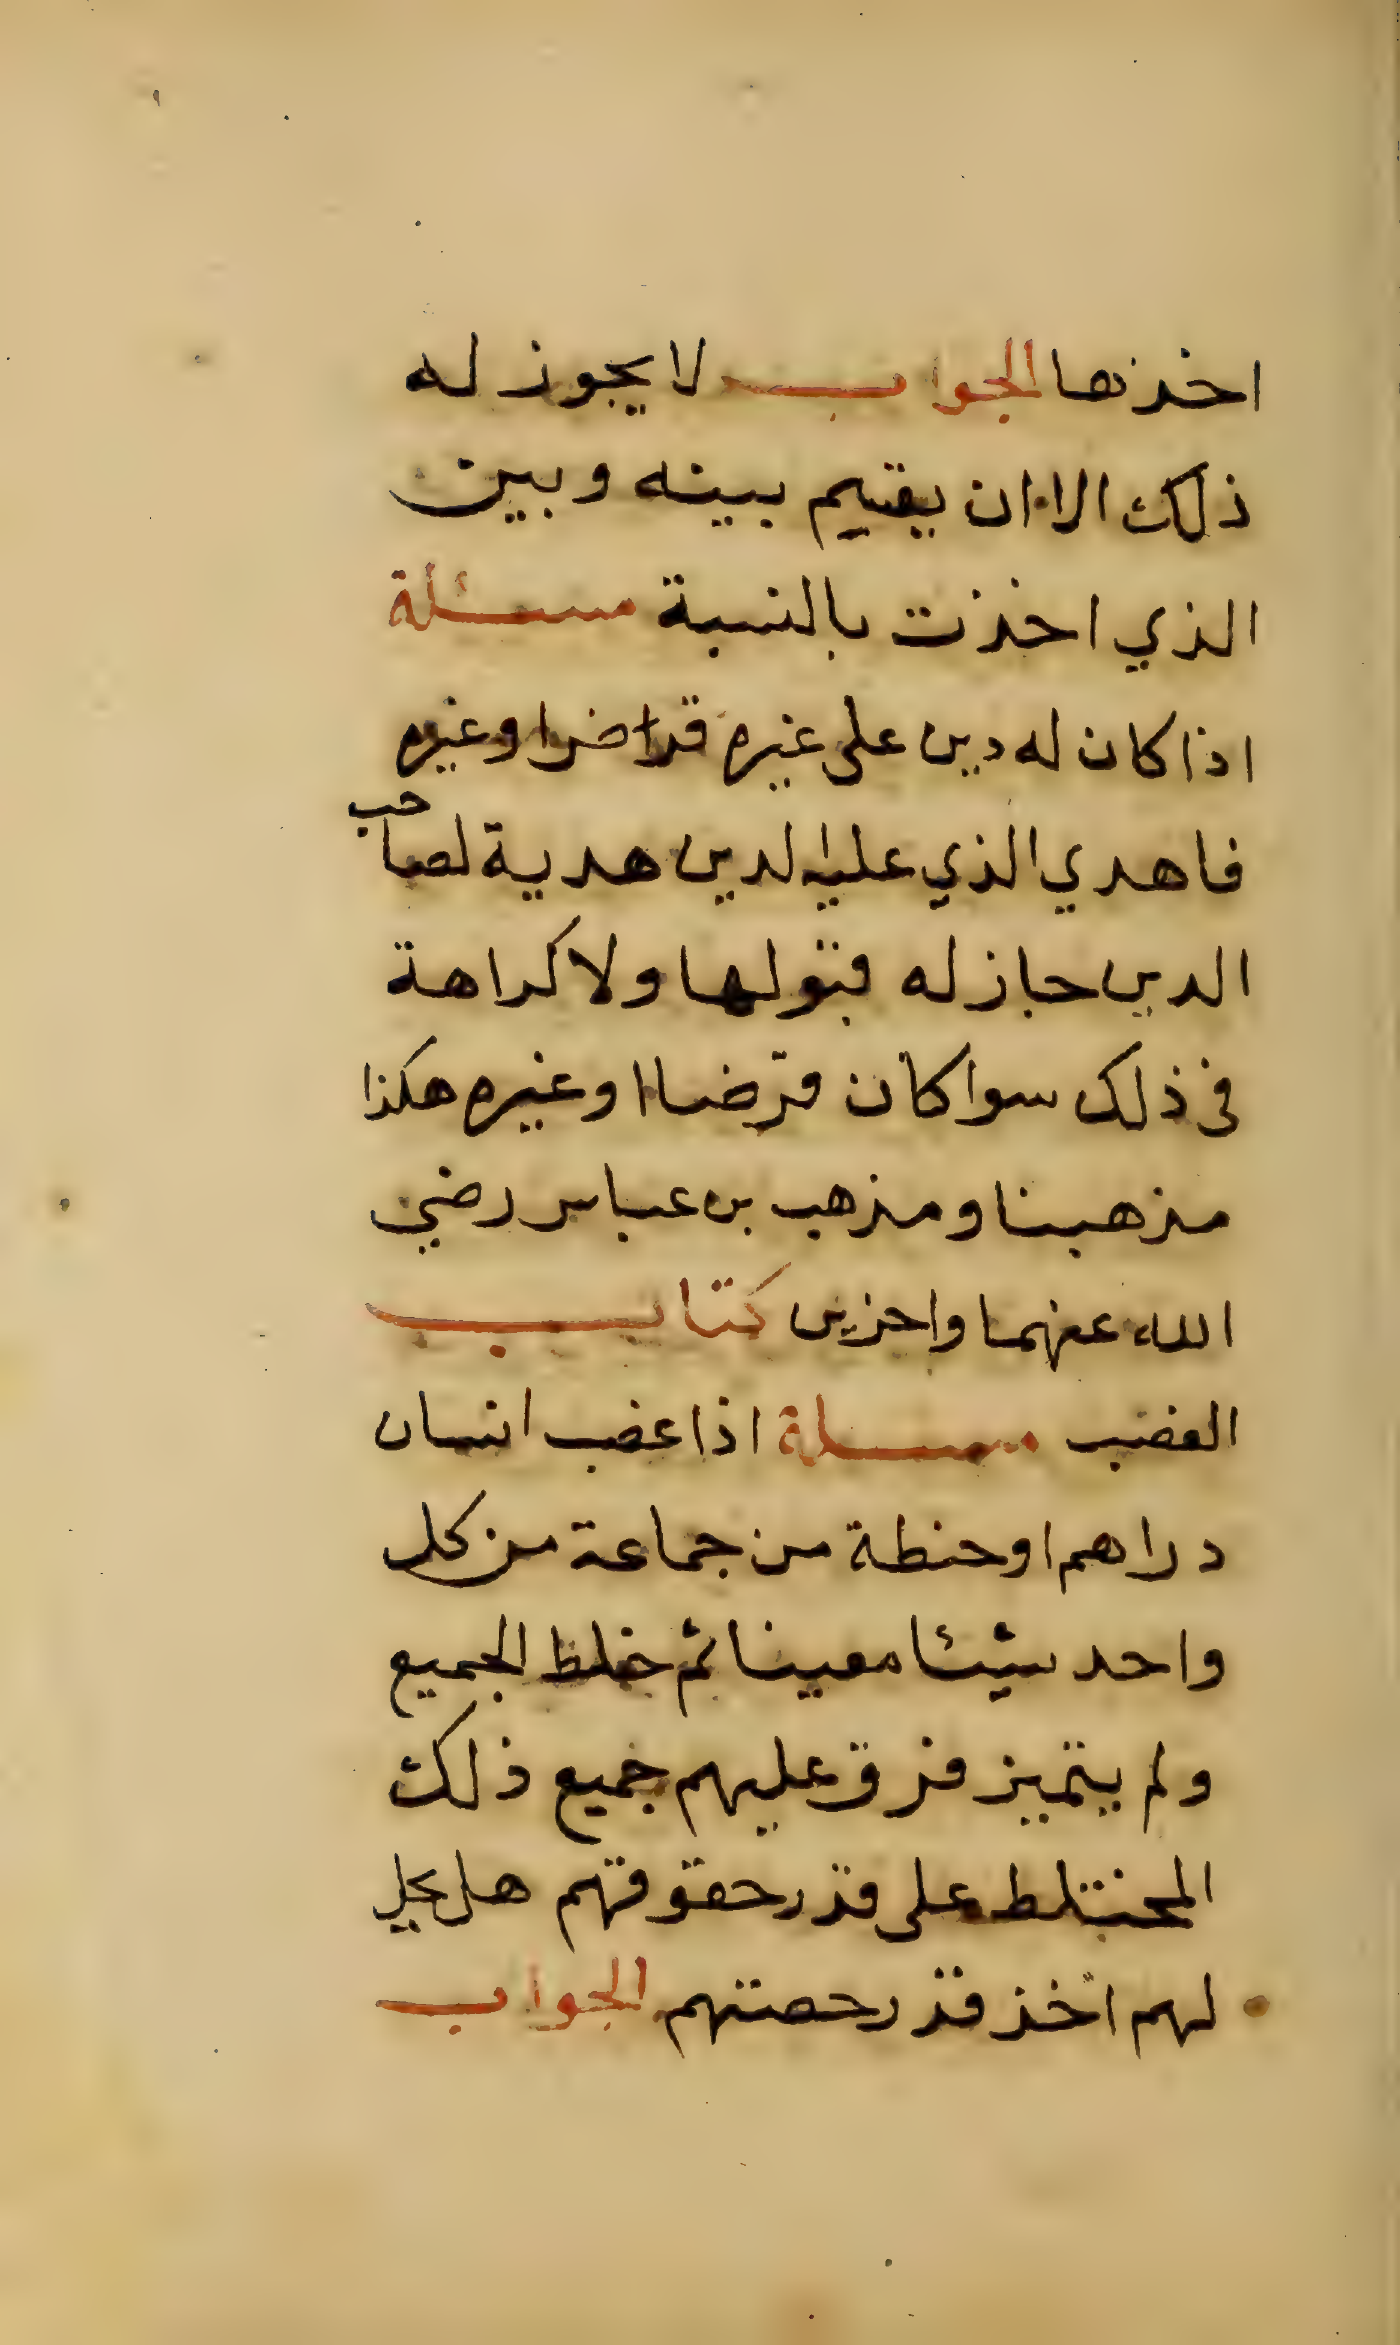 اخذها الجواب لا يجوز له
ذلك الا ان يقسم بينه وبين
الذي اخذت بالنسبة مسئلة
اذا كان له دين على غيره قراضا وغيره
فاهدي الذي عليه الدين هدية لصاحب
الدين جاز له قبولها ولا كراهة
في ذلك سوا كان قرضا او غيره هكذا
مذهبنا ومذهب بن عباس رضي
الله عنهما واخرين كتاب
الغضب مسلة اذا غضب انسان
دراهم او حنطة من جماعة من كل
واحد شيئا معينا ثم خلط الجميع
ولم يتميز فرق عليهم جميع ذلك
المختلط على قدر حقوقهم هل يحل
لهم اخذ قدر حصتهم الجواب